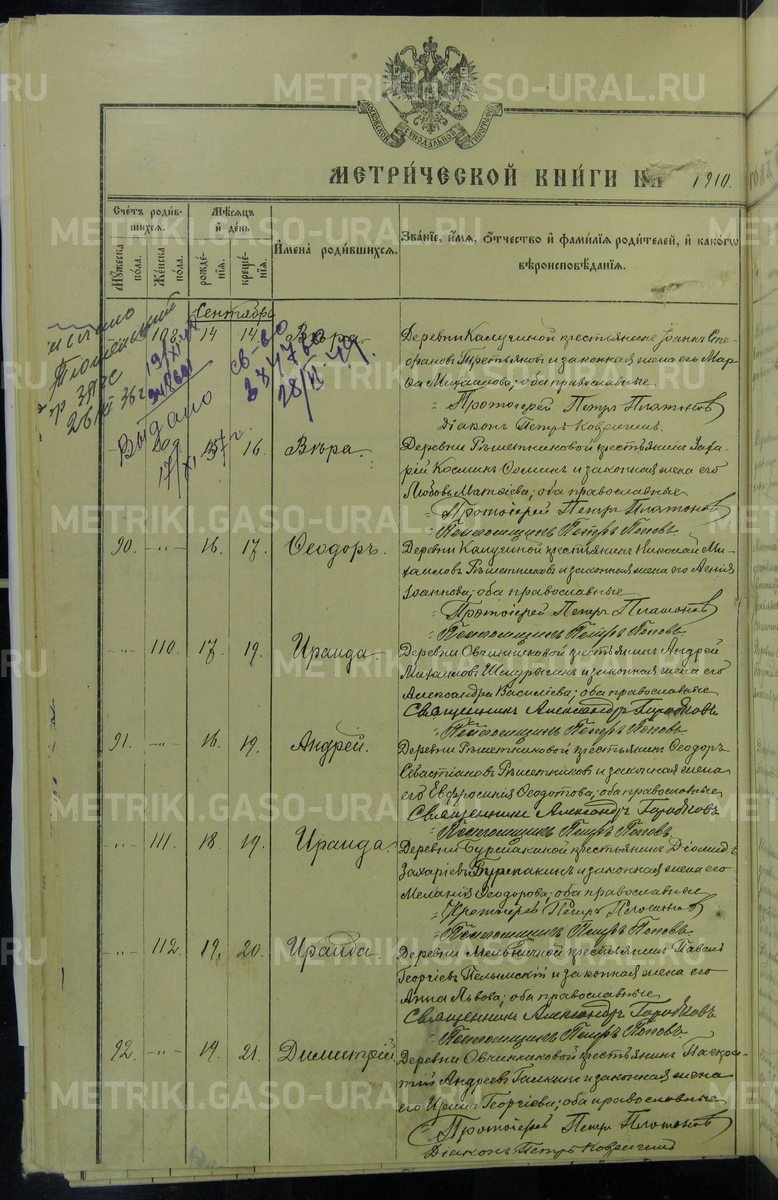 METRIKI.GASO-URAL.RU
МОСКОВСКОЙ СѴНОДАЛЬНОЙ ТИПОГРАФІИ
МЕТРИ́ЧЕСКОЙ КНИ́ГИ НА 1910.
Сче́тъ роди́вшихся.
Мѣ́сяцъ и҆ де́нь
И҆мена̀ роди́вшихся.
Зва́нїе, и҆́мѧ, ѻ҆́тчество и҆ фами́лїѧ роди́телей, и҆ како́гѡ вѣроисповѣ́данїѧ.
Мꙋ́жеска по́ла.
Же́нска по́ла.
рожде́нїѧ.
креще́нїѧ.
Сентябрь
108. 14 14 Вѣра.
Деревни Калугиной крестьянинъ Іоаннъ Сте-
фановъ Третьяковъ и законная жена его Мар-
ѳа Михаилова; оба православные
Протоіерей Петръ Платоновъ
Діаконъ Петръ
св-во
28/VI
Выдано
17/XI 37 г.
26/XI 36 г
109 15 16. Вѣра.
Деревни Рѣшетниковой крестьянинъ Заха-
рій Косминъ и законная жена его
Любовь Матѳіева; оба православные
Протоіерей Петръ Платоновъ
Псаломщикъ Петръ Поповъ.
90. -"- 16. 17. Ѳеодоръ.
Деревни Калугиной крестьянинъ Николай Ми-
хаиловъ Рѣшетниковъ и законная жена его
Іоаннова; оба православные
Протоіерей Петръ Платоновъ
Псаломщикъ Петръ Поповъ.
-"- 110. 17. 19. Ираида.
Деревни Овчинниковой крестьянинъ Андрей
Михаиловъ и законная жена его
Александра Василіева; оба православные
Священникъ Александръ
Псаломщикъ Петръ Поповъ.
91. -"- 16. 19. Андрей.
Деревни Рѣшетниковой крестьянинъ Ѳеодоръ
Севастіановъ Рѣшетниковъ и законная жена
его Евфросинія Ѳеодотова; оба православные
Священникъ Александръ
Псаломщикъ Петръ Поповъ
-"- 111. 18. 19. Ираида.
Деревни Бурмакиной крестьянинъ Діомидъ
Захаріевъ Бурмакинъ и законная жена его
Меланія Ѳеодорова; оба православные
Протоіерей Петръ Платоновъ
Псаломщикъ Петръ Поповъ.
-"- 112. 19. 20. Ираида.
Деревни Мельничной крестьянинъ Павелъ
Георгіевъ Пелымскій и законная жена его
Анна Львова; оба православные
Священникъ Александръ
Псаломщикъ Петръ Поповъ.
92. -"- 19. 21. Димитрій
Деревни Овчинниковой крестьянинъ
Андреевъ Галкинъ и законная жена
его Георгіева; оба православные
Протоіерей Петръ Платоновъ
Діаконъ Петръ